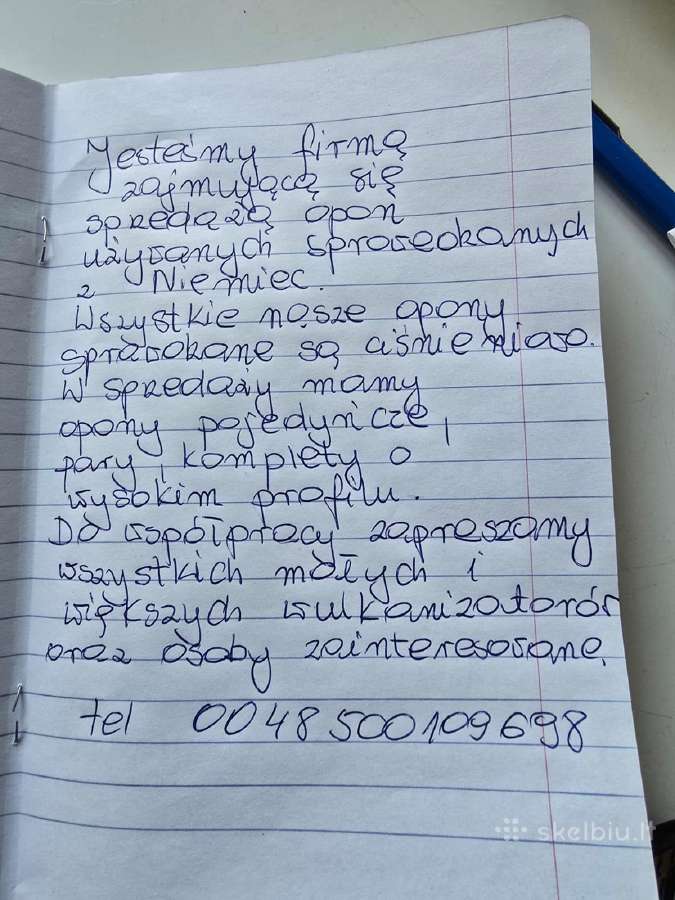 Jesteśmy firmą
zajmującą się
spredażą opon
używanych sprowedkanych
z Niemiec.
Wszystkie nasze opony
sprawdkane są ciśnieniowo.
W spredaży mamy
opony pojedynicze,
pary, komplety o
wysokim profilu.
Do współpracy zapreszamy
wszystkich małych i
większych wulkanizatorów
oraz osoby zainteresowane.
tel 0048 500109698
skelbiu.lt